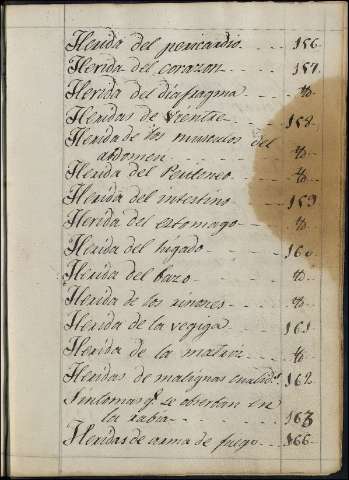 Herida del pericardio 156
Herida del corazon 157
Herida del diafragma %
Heridas de Vientre 158
Herida de los musculos del
abdomen %
Herida del Peritoneo %
Herida del intestino 159
Herida del estomago %
Herida del higado 160
Herida del bazo %
Herida de los riñones %
Herida de la vegiga 161
Herida de la matriz %
Heridas de malignas cualid.s 162
Sintomas q.e se observan en
la rabia 163
Heridas de arma de fuego 166